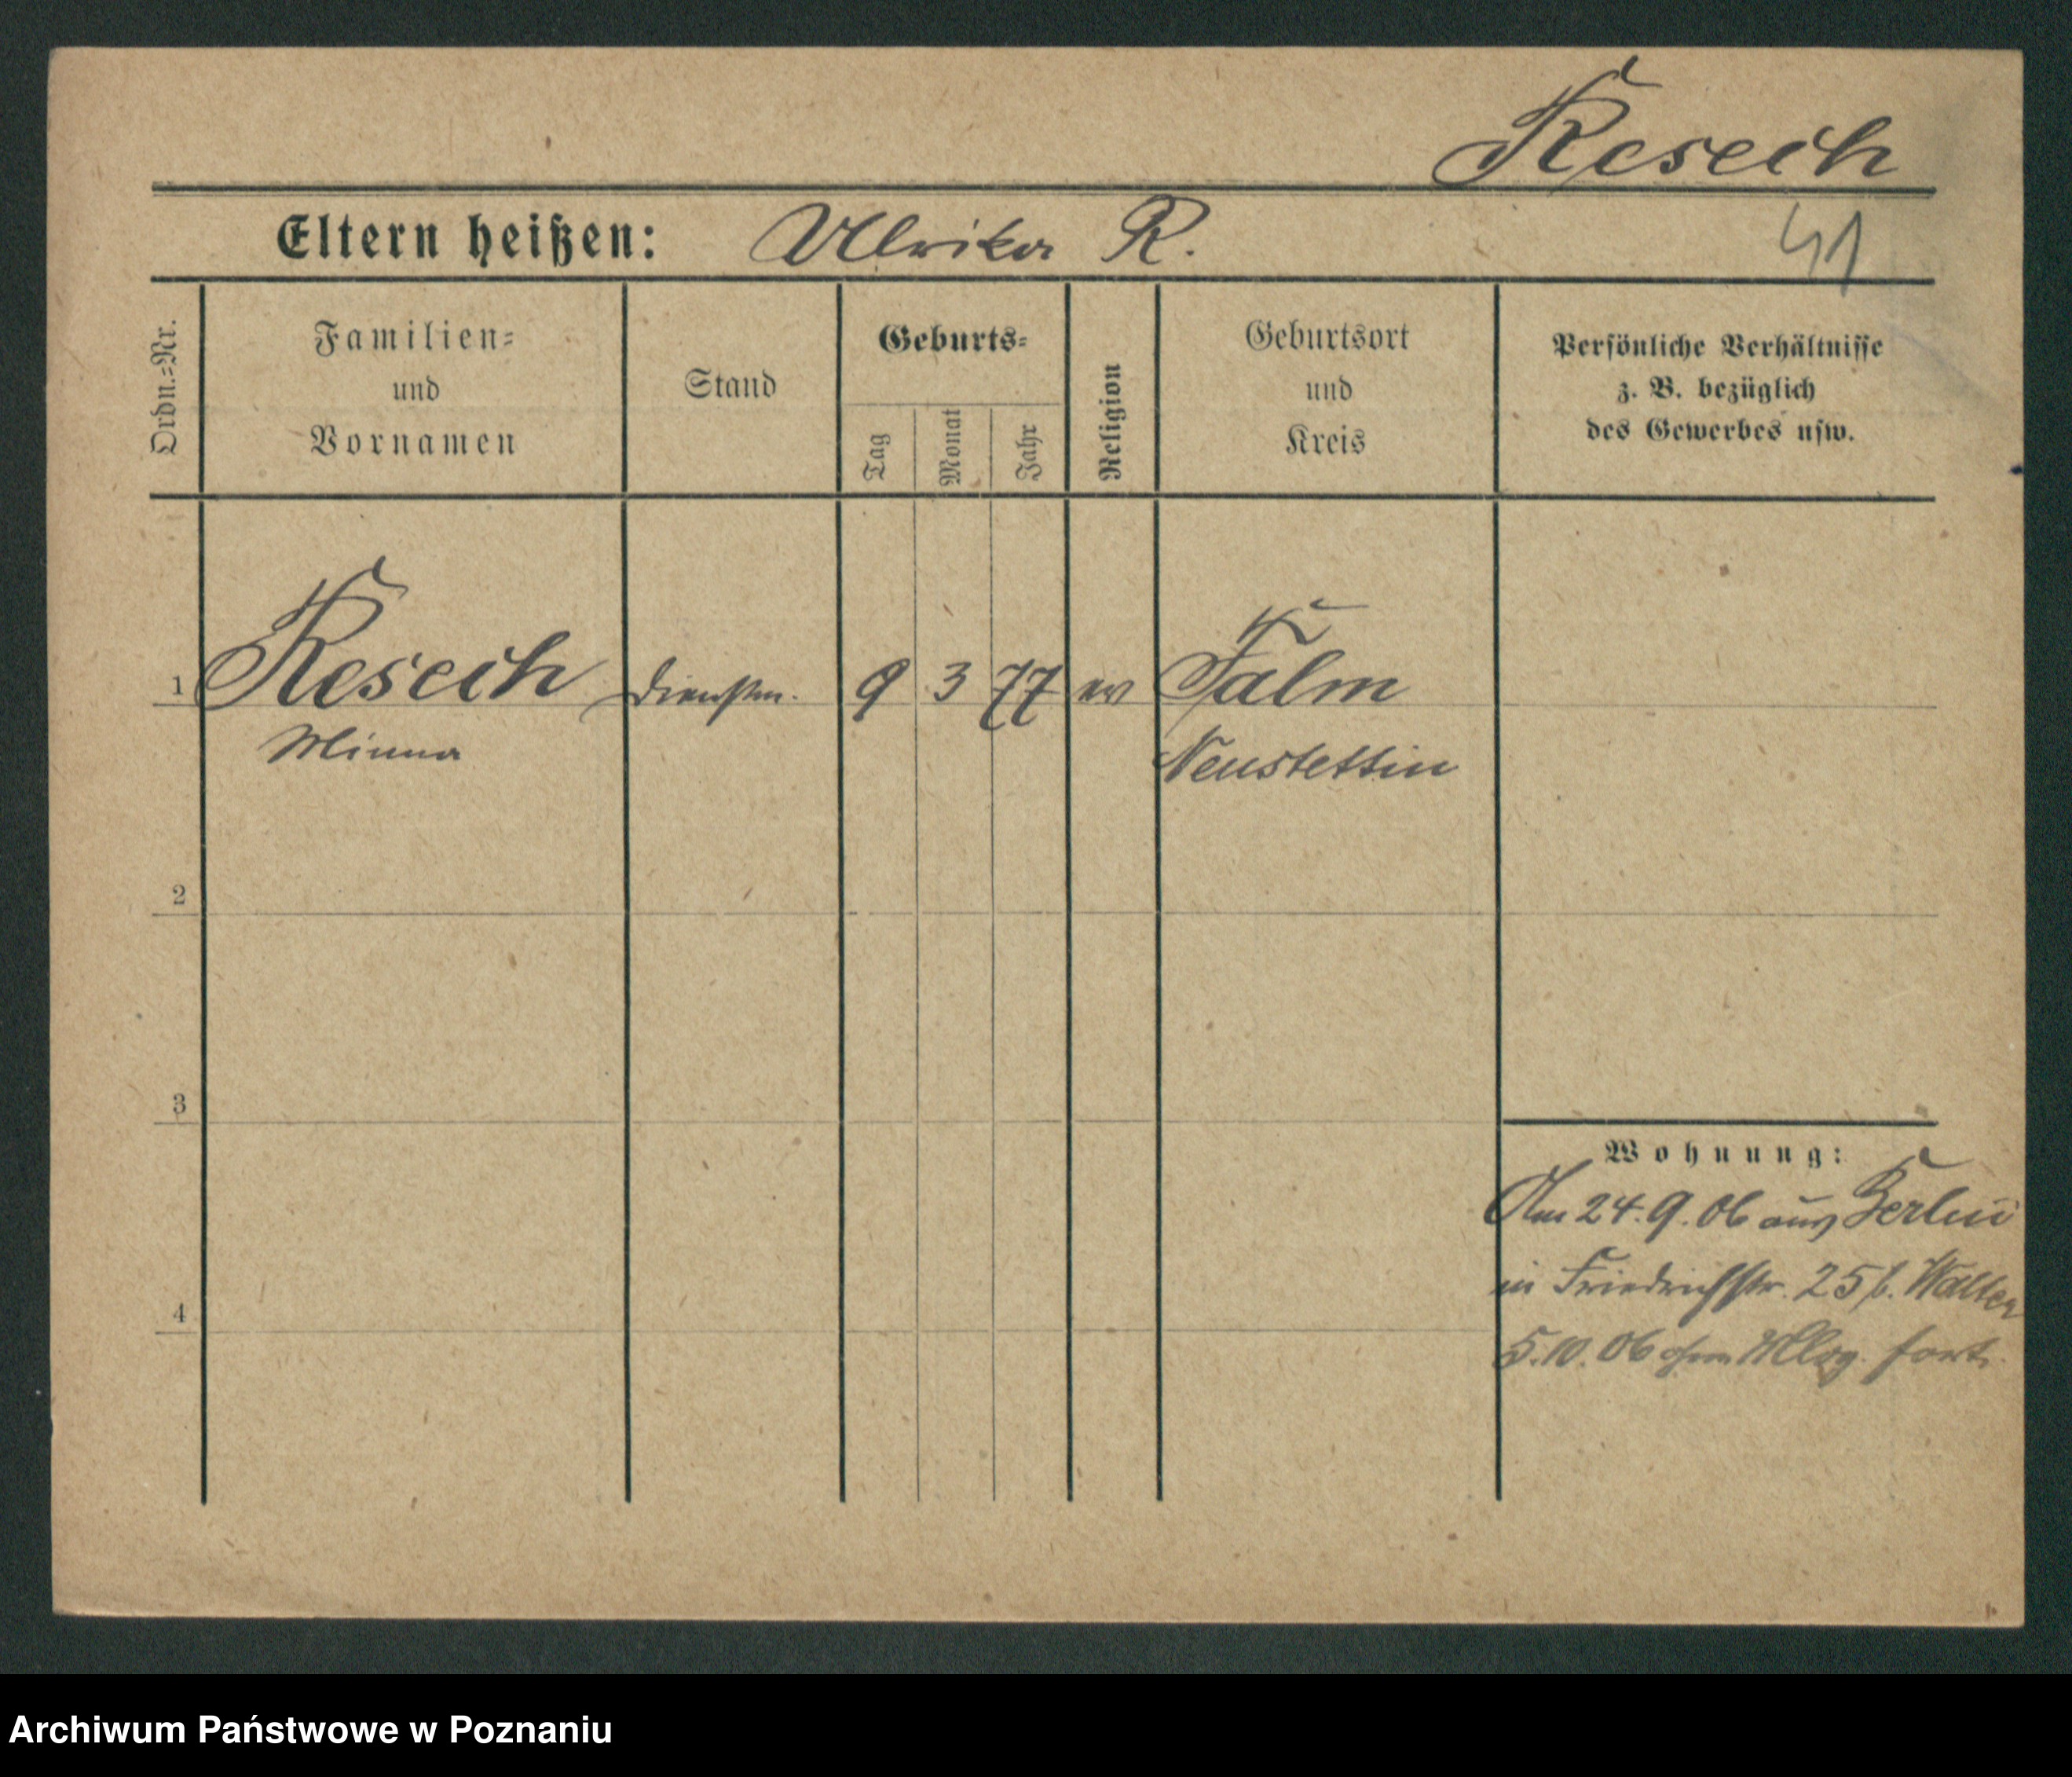 Resech
Eltern heißen: Ulrike R.
41
Ordn.=Nr.
Familien=
und
Vornamen
Stand
Geburts=
Tag
Monat
Jahr
Religion
Geburtsort
und
Kreis
Persönliche Verhältnisse
z. B. bezüglich
des Gewerbes usw.
1 Resech Dienstm. 9 3 77 ev Falm
Minna Neustettin
2
3
Wohnung:
Am 24.9.06 aus Berlin
in Friedrichstr. 25 b. Walter
4
5.10.06 ohne fort.
Archiwum Państwowe w Poznaniu